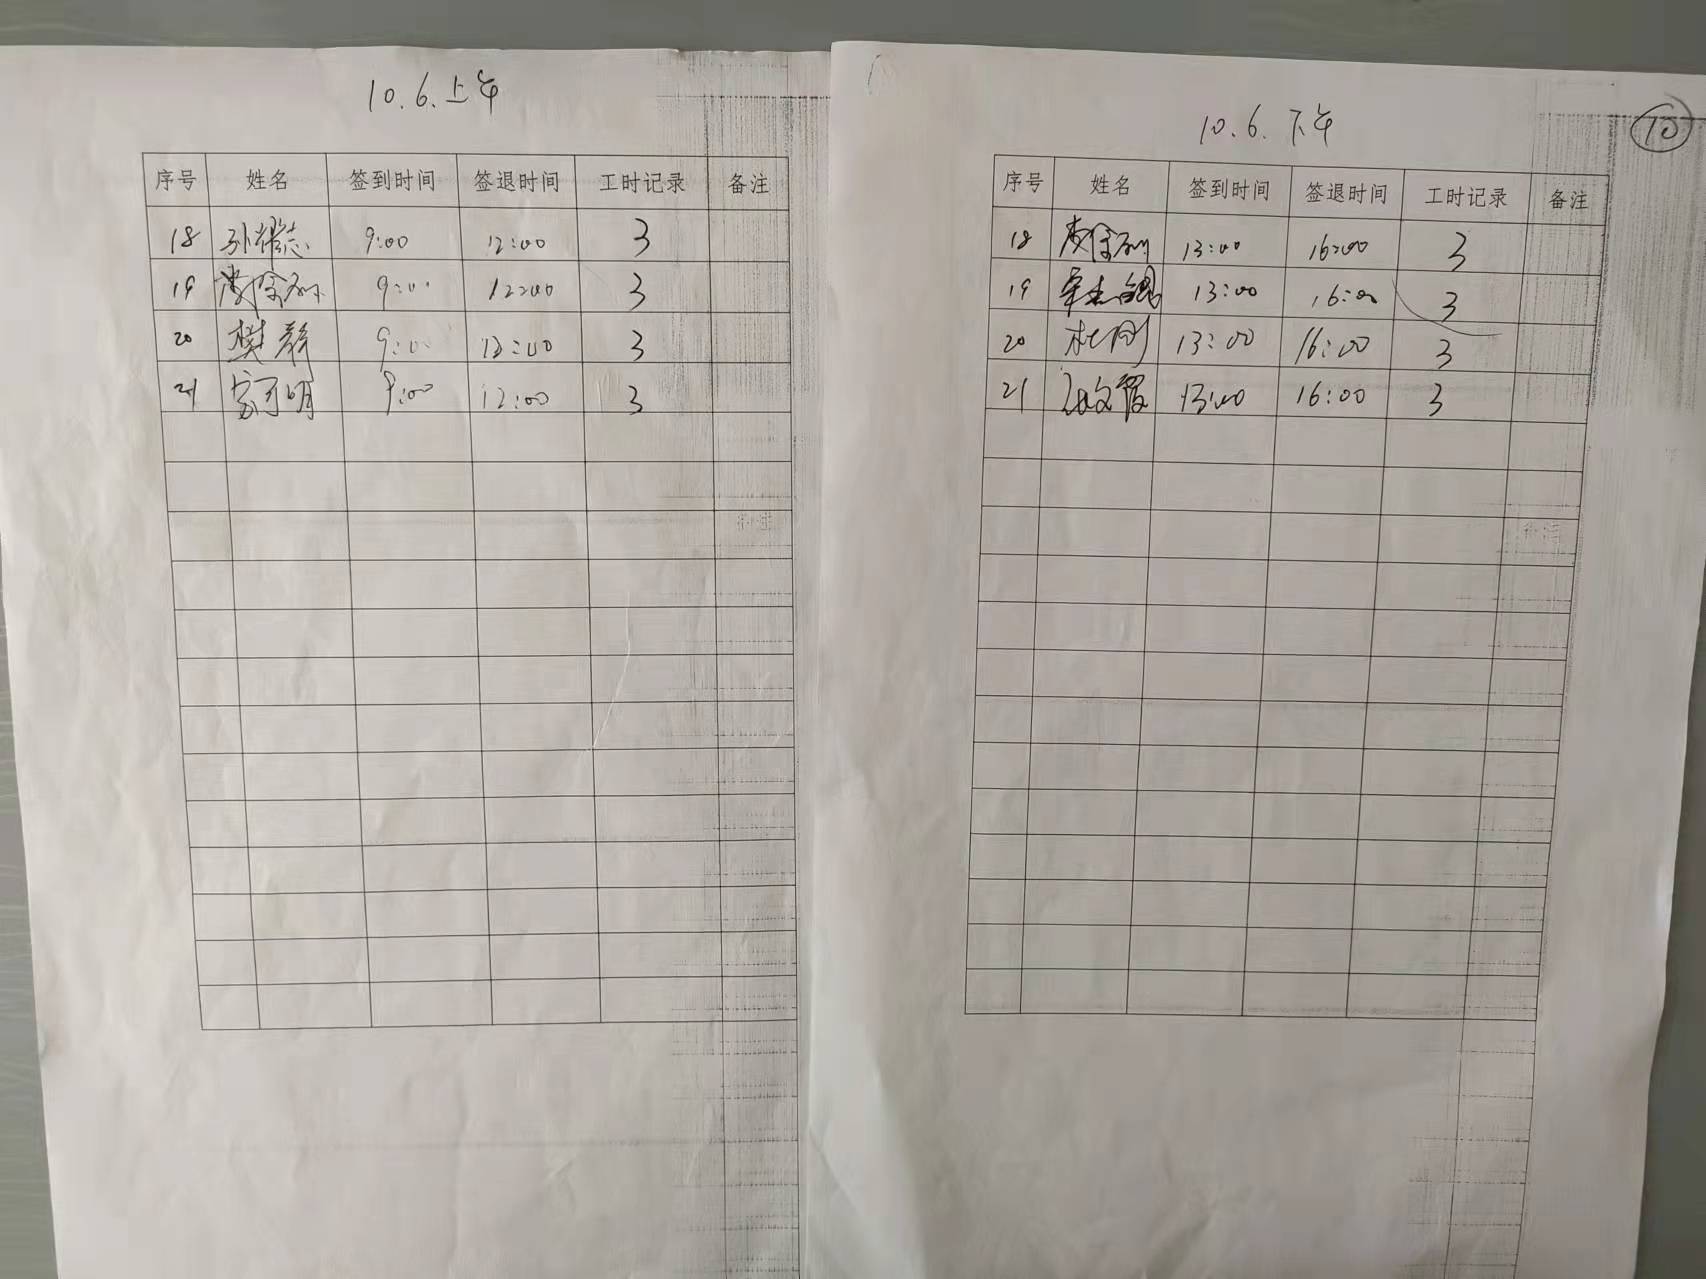 10.6.上午
序号 姓名 签到时间 签退时间 工时记录 备注
18 孙耀志 9:00 12:00 3
19 9:00 12:00 3
20 樊静 9:00 12:00 3
21 家可明 9:00 12:00 3
10
10.6.下午
序号 姓名 签到时间 签退时间 工时记录 备注
18 13:00 16:00 3
19 13:00 16:00 3
20 杜刚 13:00 16:00 3
21 13:00 16:00 3